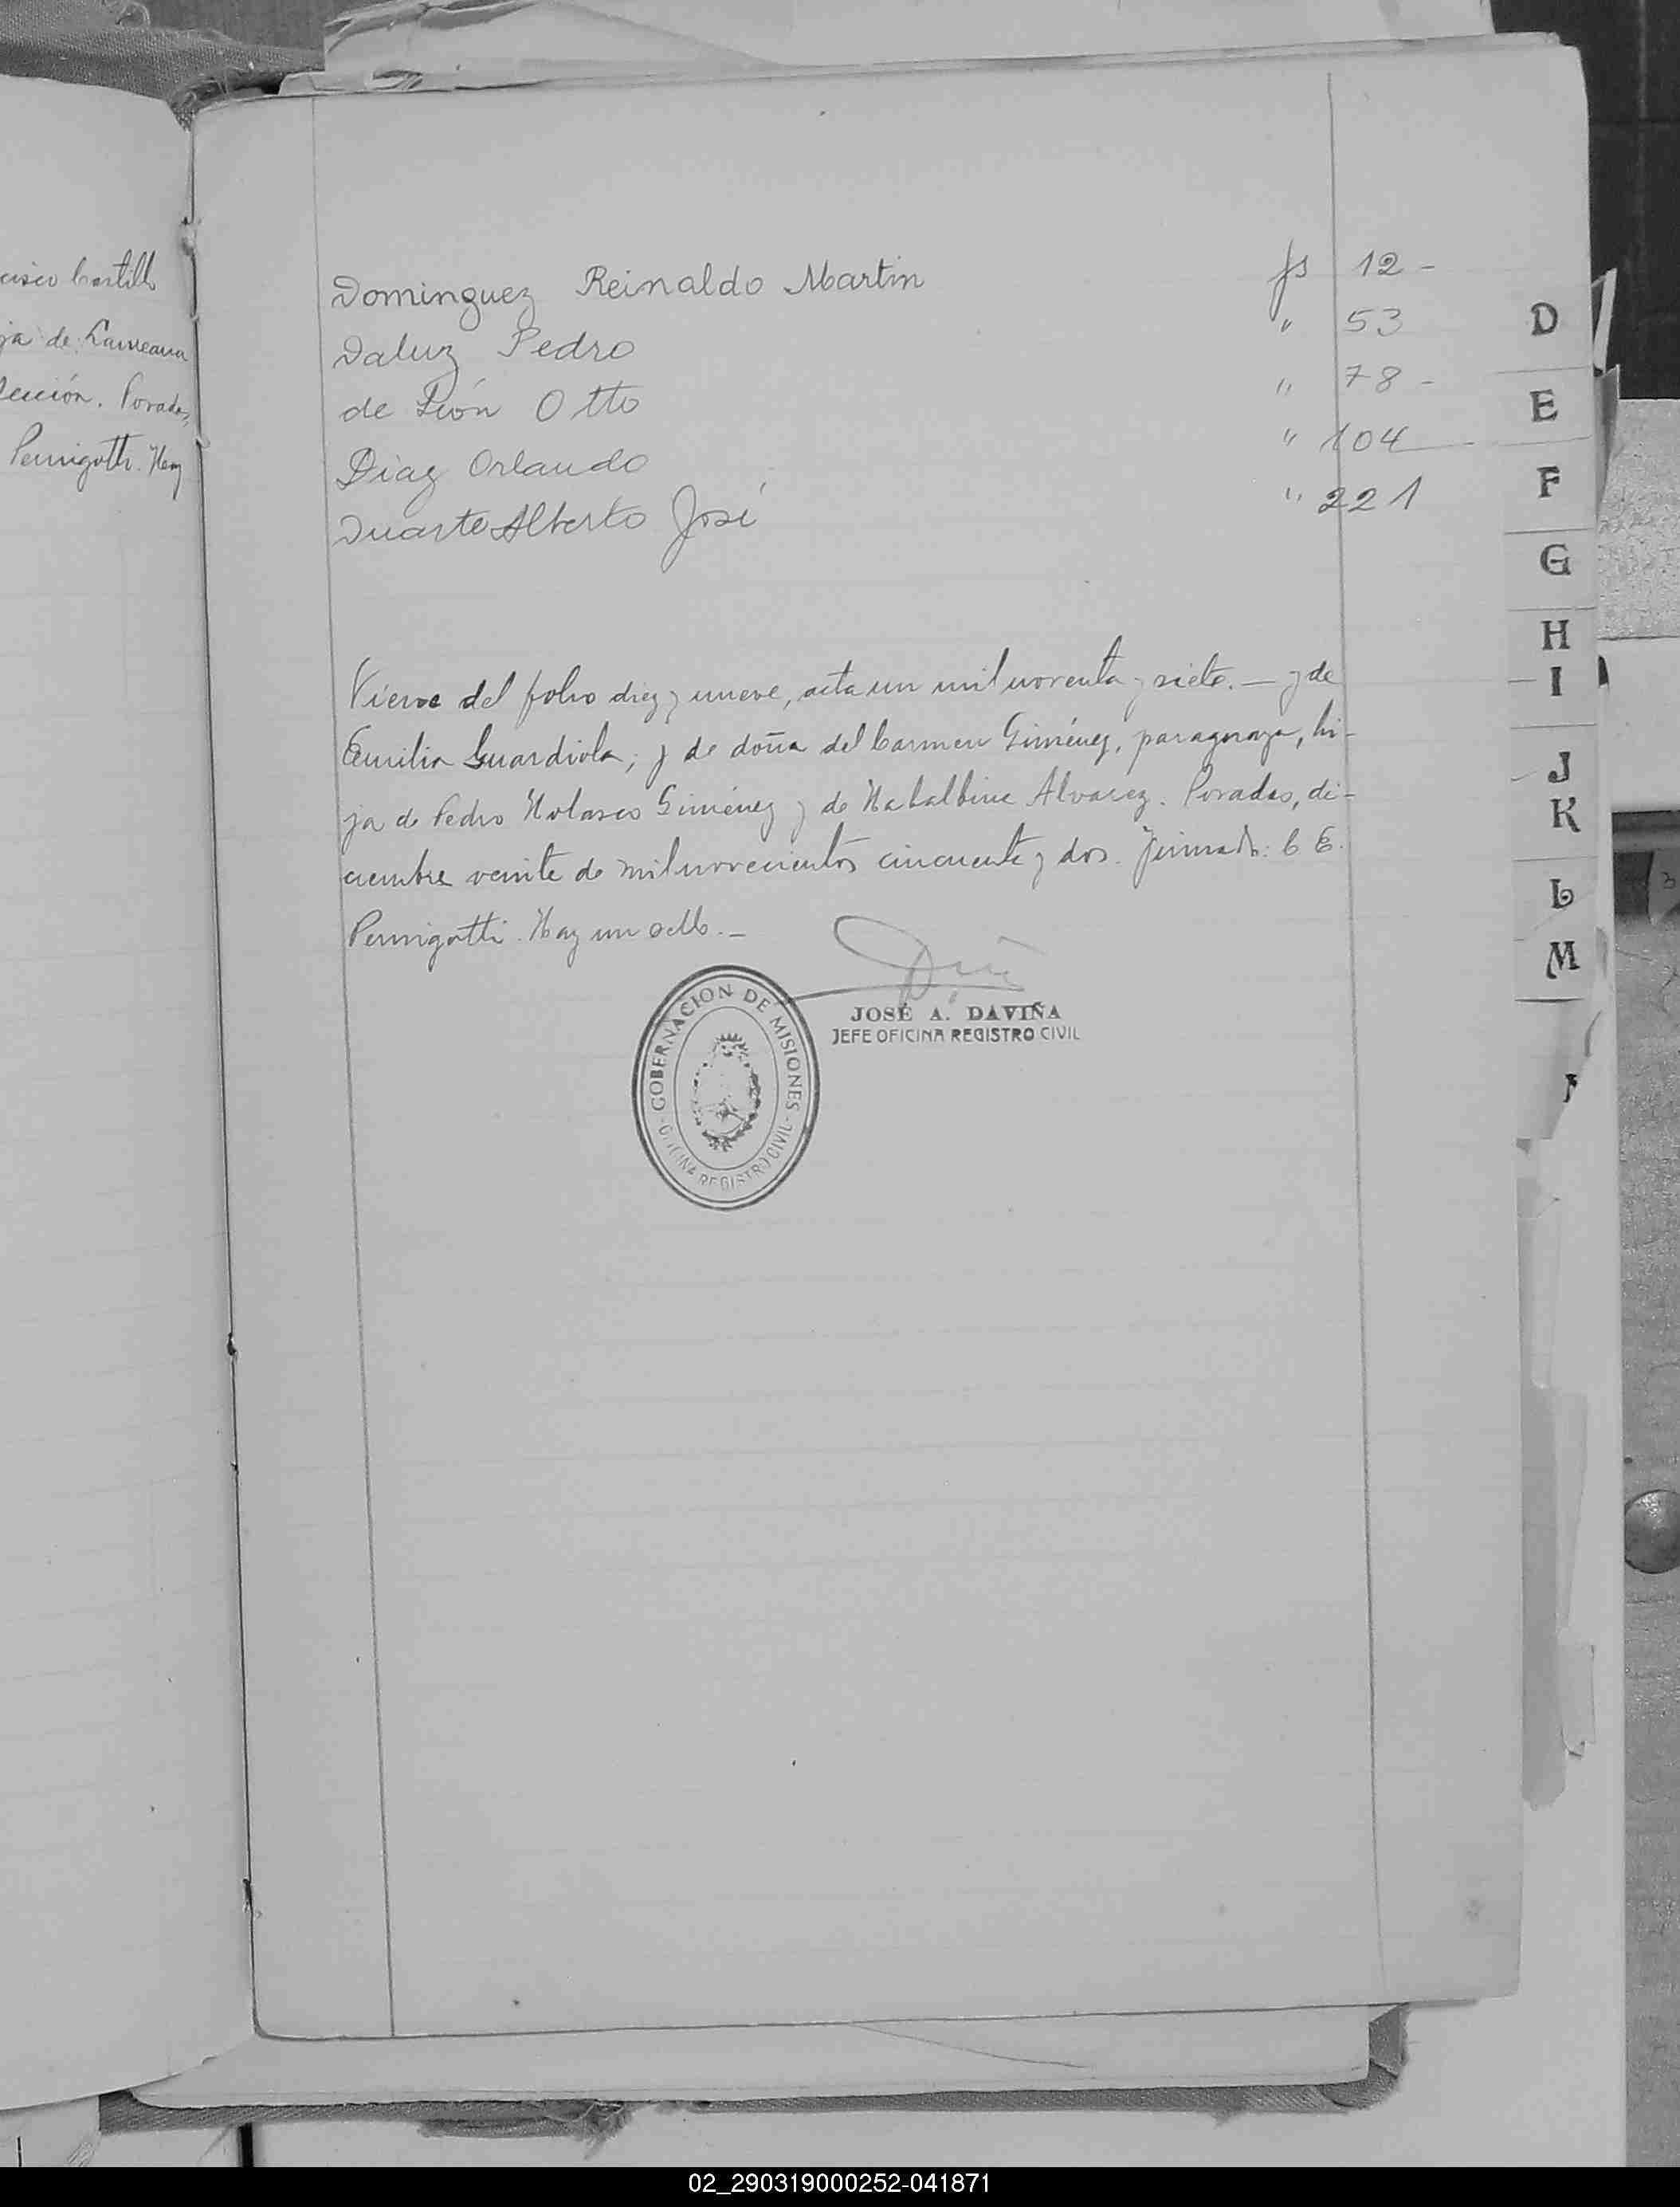 cisco Castillo
ja de Laureana
sección. Posadas,
Pernigotti. Hay
Dominguez Reinaldo Martin fs 12 -
Daluz Pedro " 53
de León Otto " 78 -
Diaz Orlando " 104
Duarte Alberto José " 221
Viene del folio diez y nueve, acta un mil noventa y siete. — y de
Emilia Guardiola; y de doña del Carmen Giménez, paraguaya, hi-
ja de Pedro Nolasco Giménez y de Alvarez. Posadas, di-
ciembre veinte de mil novecientos cincuenta y dos. Firmado: C E.
Pernigotti. Hay un sello. -
JOSÉ A. DAVIÑA
JEFE OFICINA REGISTRO CIVIL
GOBERNACION DE MISIONES
OFICINA REGISTRO CIVIL
D
E
F
G
H
I
J
K
L
M
02_290319000252-041871